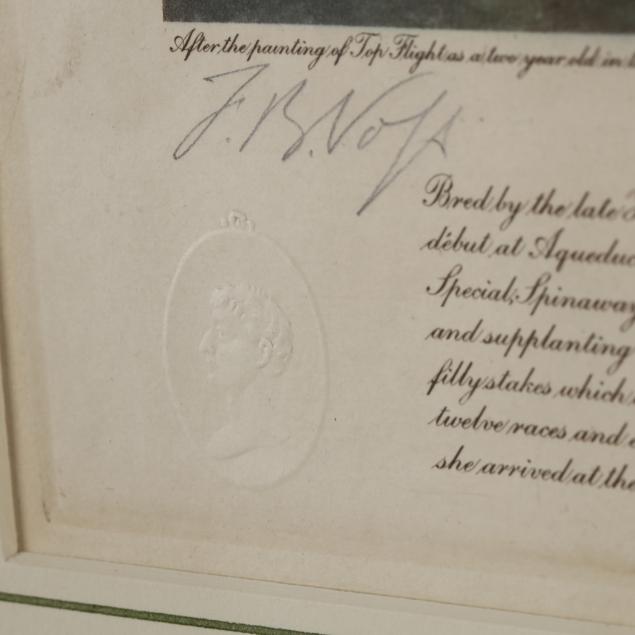 After the painting of Top Flight as a two year old in
F. B. Voss
Bred by the late
début at Aqueduc
Special, Spinaway
and supplanting
filly stakes which
twelve races and
she arrived at the